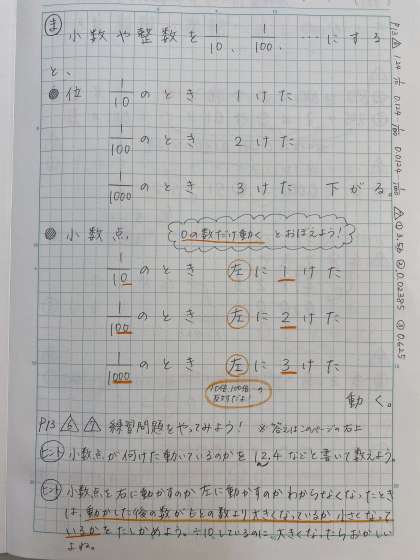 ま 小数や整数を1/10、1/100、…にする
と、
● 位 1/10のとき 1けた
1/100のとき 2けた
1/1000のとき 3けた 下がる。
● 小数点 0の数だけ動く とおぼえよう!
1/10のとき 左に1けた
1/100のとき 左に2けた
1/1000のとき 左に3けた
10倍、100倍…の
反対だよ!
動く。
P13 6 7 練習問題をやってみよう! ※答えはこのページの右上
ヒント 小数点が何けた動いているのかを 12.4 などと書いて数えよう。
ヒント 小数点を右に動かすのか左に動かすのかわからなくなったとき
は、動かした後の数がもとの数より大きくなっているか小さくなって
いるかをたしかめよう。÷10しているのに、大きくなったらおかしい
よね。
P13 6 1.24 1/10 0.124 1/100 0.0124 7 ① 3.56 ② 0.02385 ③ 0.625